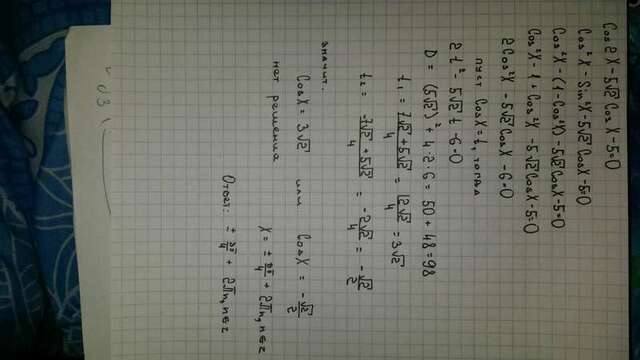 Cos 2X - 5√2 Cos X - 5 = 0
Cos²X - Sin²X - 5√2 Cos X - 5 = 0
Cos²X - (1 - Cos²X) - 5√2 Cos X - 5 = 0
Cos²X - 1 + Cos²X - 5√2 Cos X - 5 = 0
2 Cos²X - 5√2 Cos X - 6 = 0
пуст Cos X = t, тогда
2t² - 5√2 t - 6 = 0
D = (5√2)² + 4·2·6 = 50 + 48 = 98
t₁ = (7√2 + 5√2)/4 = 12√2/4 = 3√2
t₂ = (7√2 + 5√2)/4 = -2√2/4 = -√2/2
значит.
Cos X = 3√2 или Cos X = -√2/2
нет решения X = ± 3π/4 + 2πn, n∈z
Ответ: ± 3π/4 + 2πn, n∈z